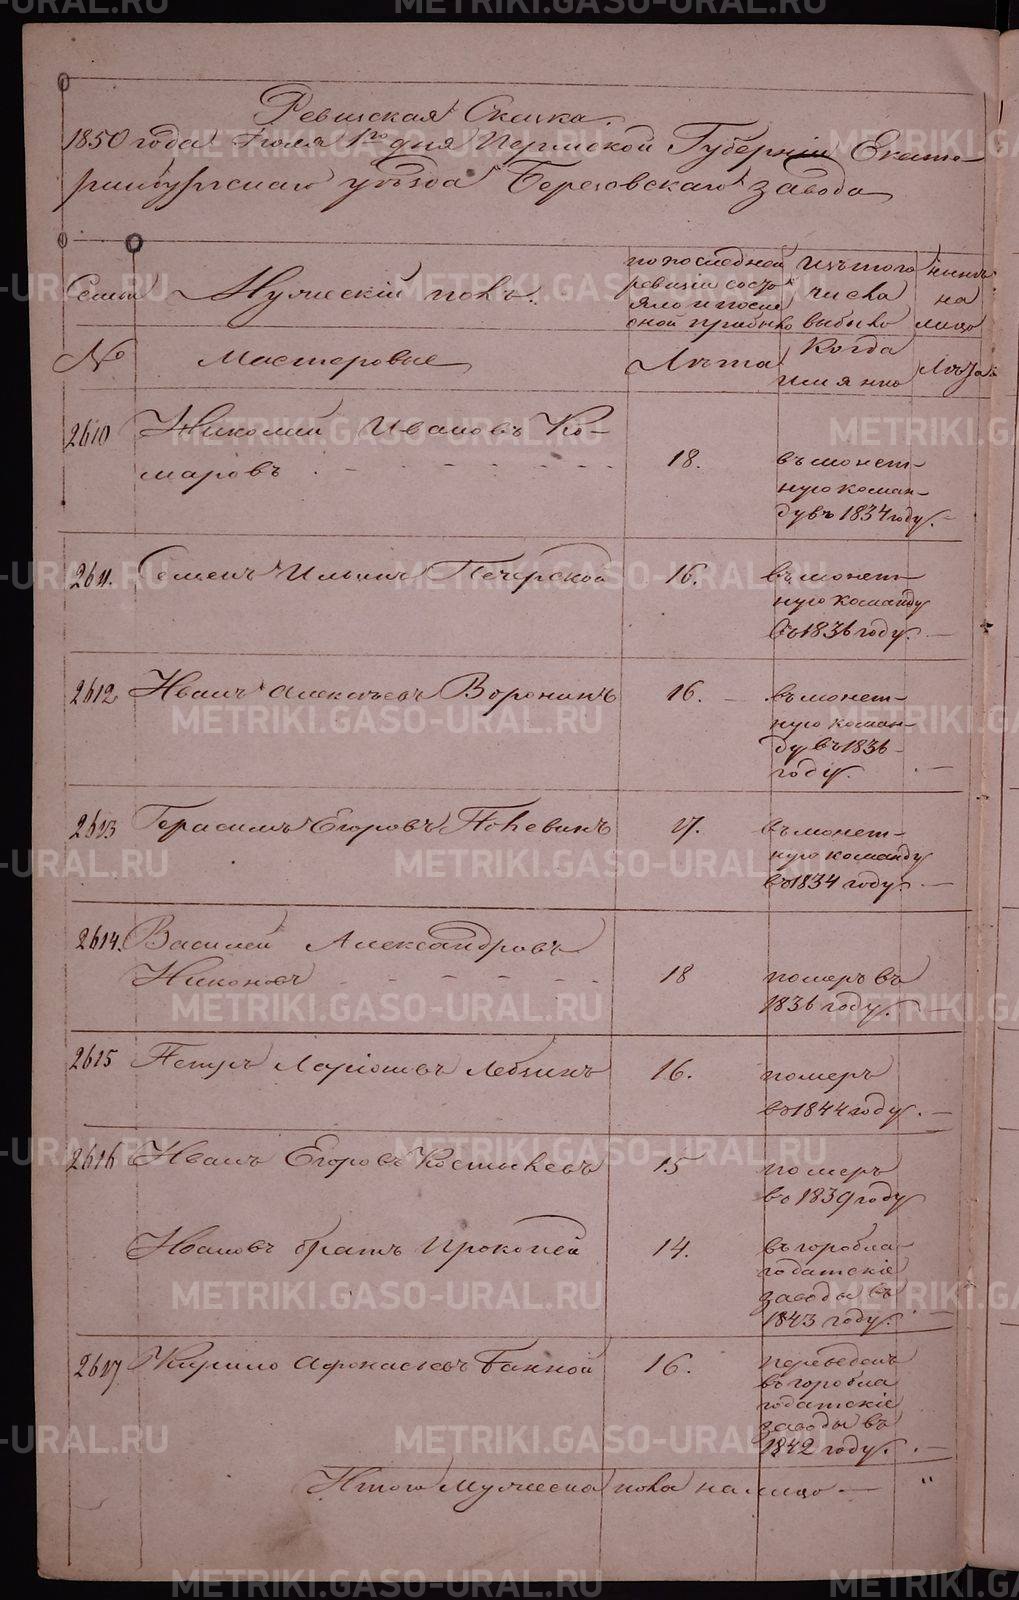 Ревизская Сказка.
1850 года Июля 1го дня Пермской Губернии Екате-
ринбургскаго уезда Березовскаго завода
Семьи
Мужескій полъ.
по последней
ревизіи состо
яло и после
оной прибыло
Изъ того
числа
выбыло
ныне
на
лицо
№
Мастеровые
Лета
Когда
имянно
Лета
2610
Николай Ивановъ Ко-
маровъ
18.
въ монет-
ную коман-
ду въ 1834 году.
2611.
Семенъ Ильинъ Печерской
16.
въ монет-
ную команду
въ 1836 году.
2612
Иванъ Алексеевъ Воронинъ
16.
въ монет-
ную коман-
ду въ 1836
году.
2613
Герасимъ Егоровъ Полевинъ
17.
въ монет-
ную команду
въ 1834 году.
2614.
Василей Александровъ
Никоновъ
18
померъ въ
1836 году.
2615
Петръ Ларіоновъ
16.
померъ
въ 1844 году.
2616
Иванъ Егоровъ Костылевъ
15
померъ
въ 1839 году
Ивановъ братъ Прокопей
14.
въ горобла-
годатскіе
заводы въ
1843 году.
2617
Кирило Афонасьевъ Банной
16.
переведенъ
въ горобла
годатскіе
заводы въ
1842 году.
Итого мужеска пола на лицо — "
METRIKI.GASO-URAL.RU